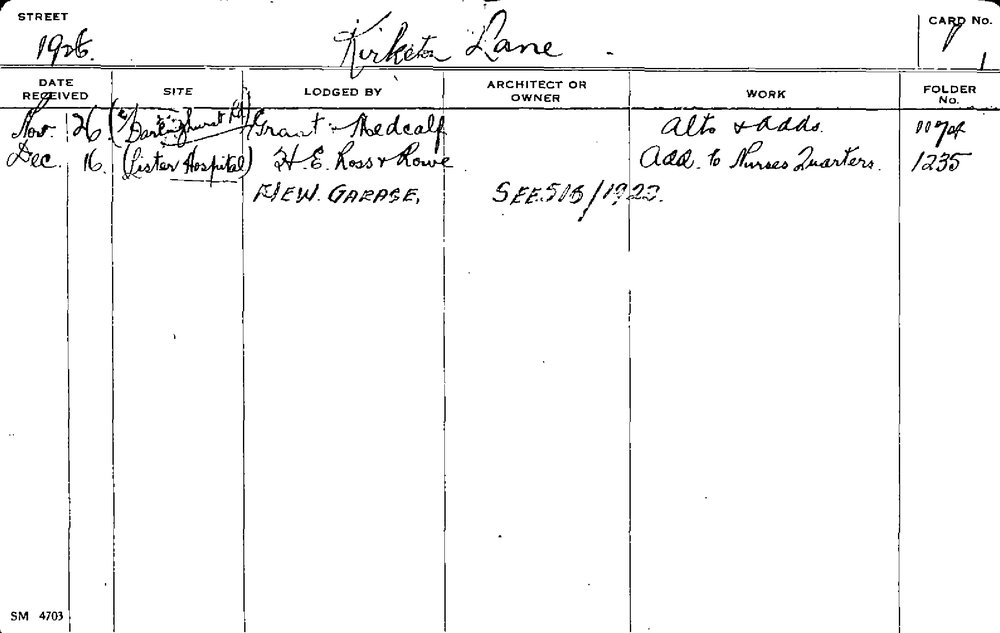 STREET
CARD No.
1926. Kirketon Lane
1
DATE RECEIVED SITE LODGED BY ARCHITECT OR OWNER WORK FOLDER No.
Nov. 26 (Darlinghurst Rd) Grant Medcalf Alts & Adds.
Dec. 16. (Lister Hospital) H. E. Ross & Rowe Add. to Nurses Quarters. 1235
NEW. GARAGE. SEE
SM 4703